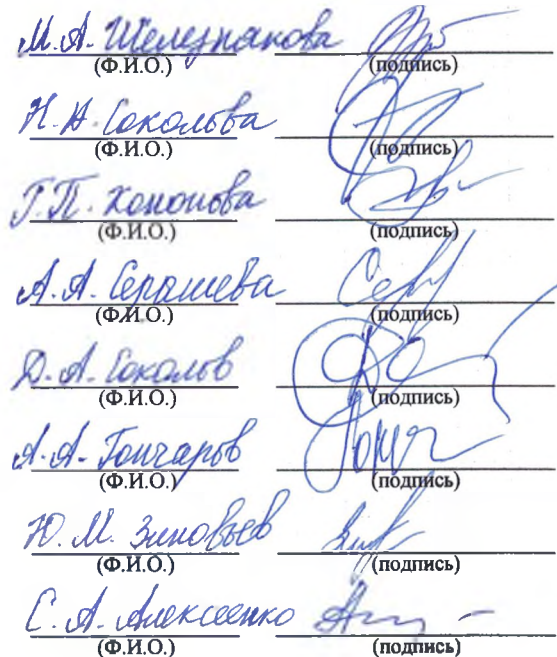 М.А. Шелезнакова
(Ф.И.О.) (подпись)
Н.А. Соколова
(Ф.И.О.) (подпись)
Г.П. Кононова
(Ф.И.О.) (подпись)
А.А. Серашева
(Ф.И.О.) (подпись)
Д.А. Соколов
(Ф.И.О.) (подпись)
А.А. Гончаров
(Ф.И.О.) (подпись)
Ю.М. Зиновьев
(Ф.И.О.) (подпись)
С.А. Алексеенко
(Ф.И.О.) (подпись)